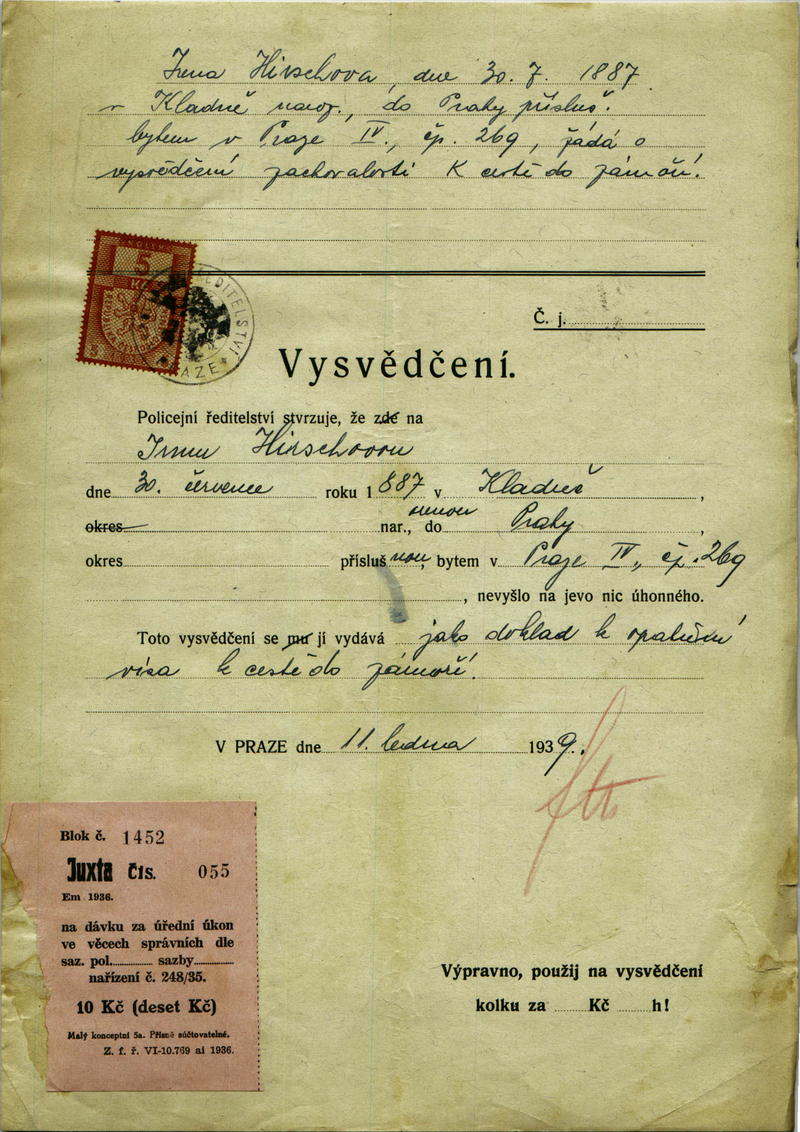 Irena Hirschova, dne 30. 7. 1887
v Kladně naroz., do Prahy přísluš.
bytem v Praze IV., čp. 269, žádá o
vysvědčení zachovalosti k cestě do zámoří.
5
Kč
Č. j.
Vysvědčení.
Policejní ředitelství stvrzuje, že zde na
Irenu Hirschovou
dne 30. července roku 1887 v Kladně,
okres nar., do Prahy,
okres přísluš nou, bytem v Praze IV., čp. 269
, nevyšlo na jevo nic úhonného.
Toto vysvědčení se mu jí vydává jako doklad k opatření
visa k cestě do zámoří.
V PRAZE dne 11. ledna 1939.
Blok č. 1452
Juxta čís. 055
Em 1936.
na dávku za úřední úkon
ve věcech správních dle
saz. pol. sazby
nařízení č. 248/35.
10 Kč (deset Kč)
Malý konceptní 5a. Přísně súčtovatelné.
Z. f. ř. VI-10.769 ai 1936.
Výpravno, použij na vysvědčení
kolku za Kč h!